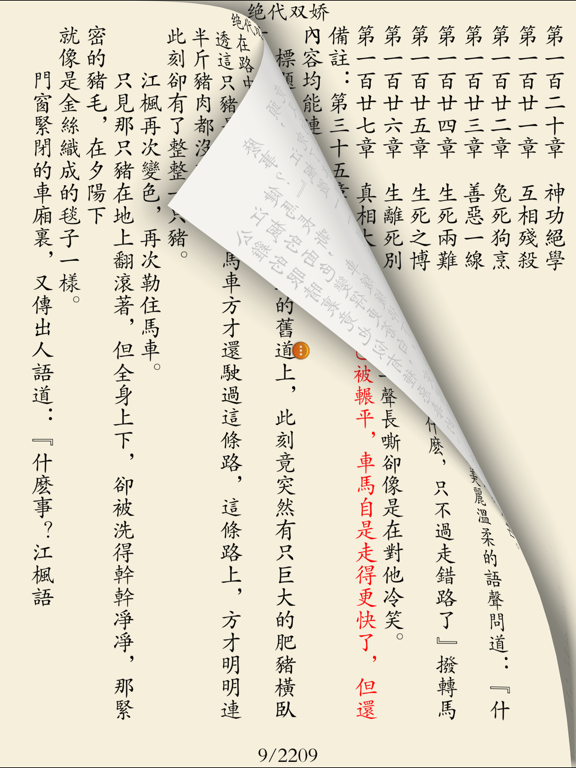 绝代双娇
第一百二十章 神功絕學
第一百廿一章 互相殘殺
第一百廿二章 兔死狗烹
第一百廿三章 善惡一線
第一百廿四章 生死兩難
第一百廿五章 生死之博
第一百廿六章 生離死別
第一百廿七章 真相大
備註：第三十五章
內容均能連
標題
美麗溫柔的語聲問道：『什
什麼，只不過走錯路了』撥轉馬
一聲長嘶卻像是在對他冷笑。
被輾平，車馬自是走得更快了，但還
的舊道上，此刻竟突然有只巨大的肥豬橫臥
在路中
馬車方才還駛過這條路，這條路上，方才明明連
透這只豬
半斤豬肉都沒
此刻卻有了整整一只豬。
江楓再次變色，再次勒住馬車。
只見那只豬在地上翻滾著，但全身上下，卻被洗得幹幹凈凈，那緊
密的豬毛，在夕陽下
就像是金絲織成的毯子一樣。
門窗緊閉的車廂裏，又傳出人語道：『什麼事？江楓語
9/2209